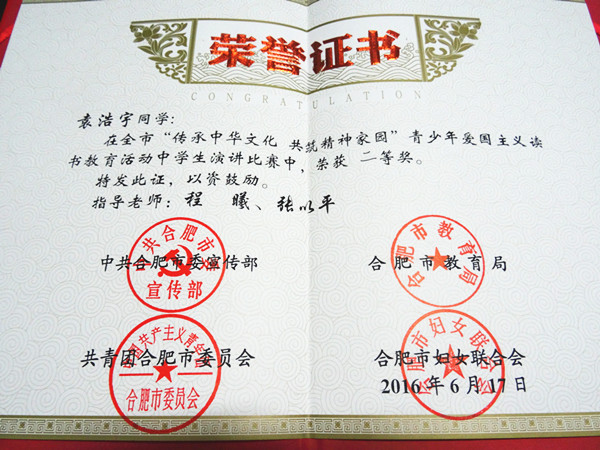 荣誉证书
CONGRATULATION
袁浩宇同学:
在全市“传承中华文化 共筑精神家园”青少年爱国主义读
书教育活动中学生演讲比赛中,荣获 二等奖。
特发此证,以资鼓励。
指导老师:程 曦、张以平
中共合肥市委宣传部
合肥市教育局
中共合肥市委
宣传部
合肥市教育局
共青团合肥市委员会
合肥市妇女联合会
2016年6月17日
中国共产主义青年团
合肥市委员会
合肥市妇女联合会